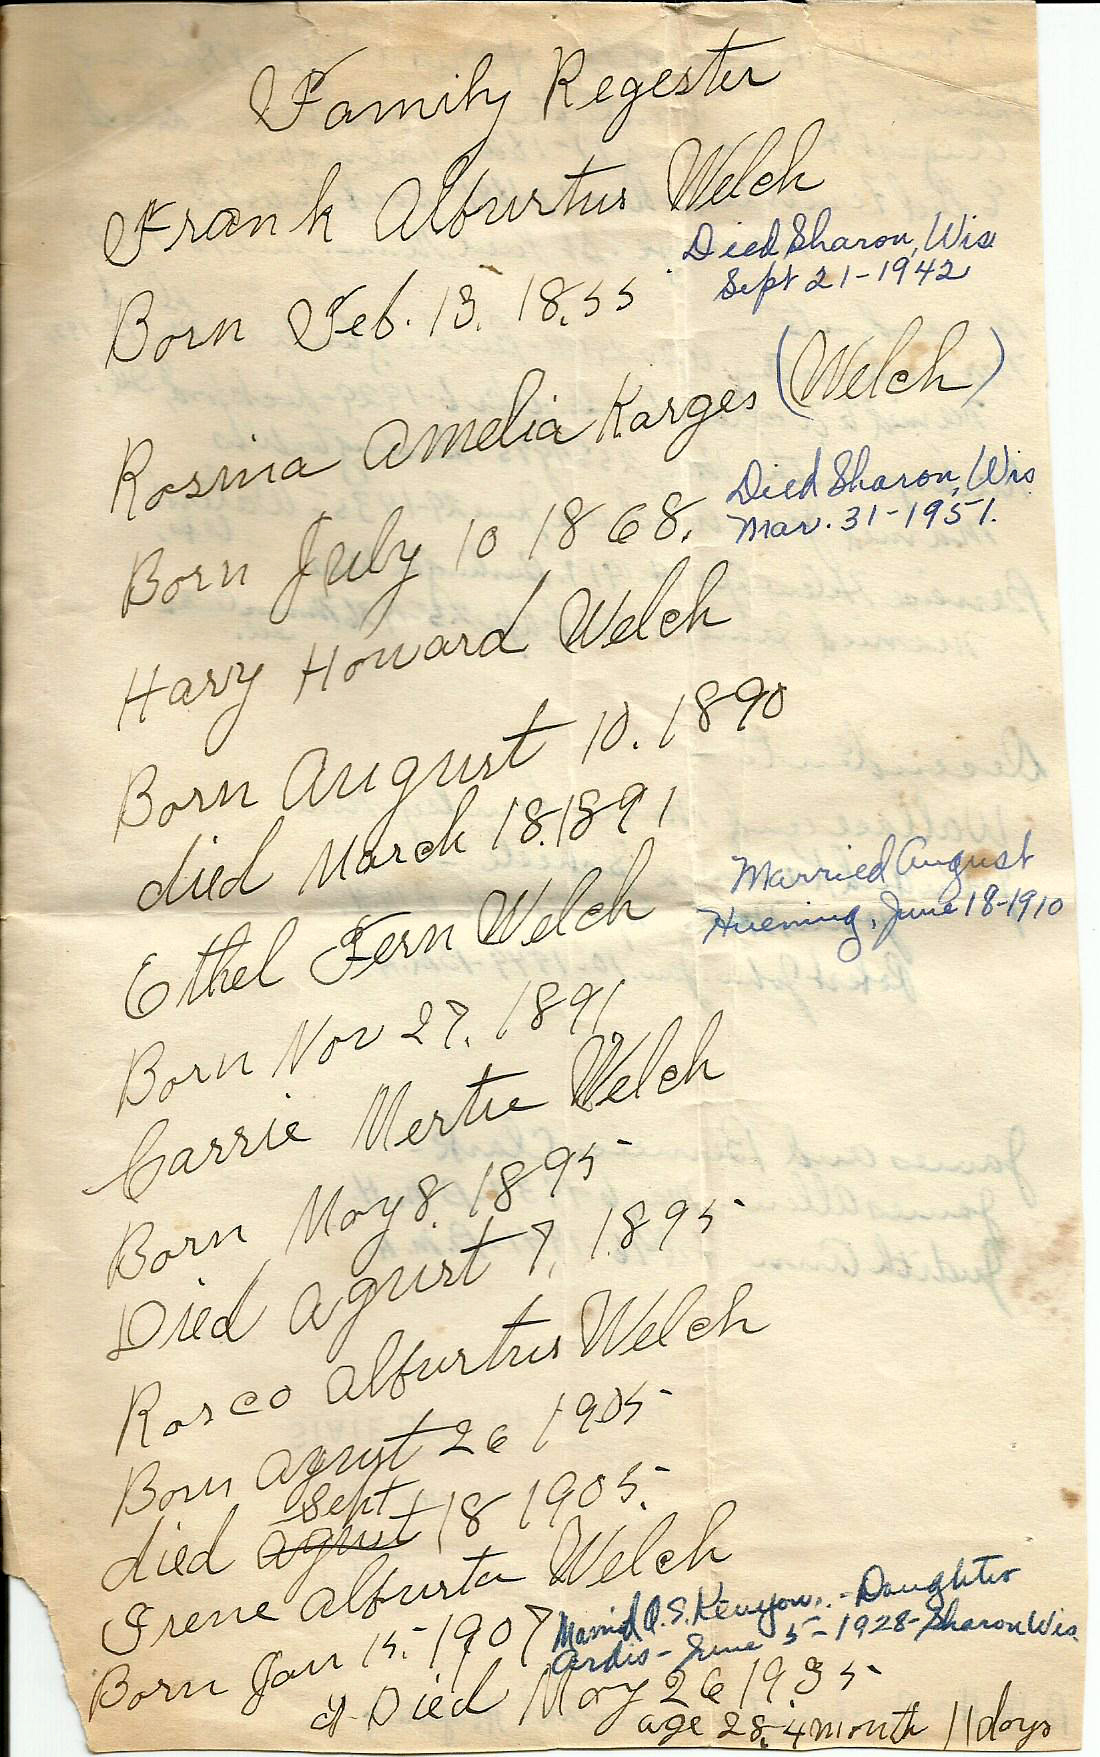 Family Regester
Frank Alburtus Welch
Died Sharon, Wis
Sept 21-1942
Born Feb. 13. 1855
Rosina Amelia Karges (Welch)
Died Sharon, Wis
Mar. 31-1951.
Born July 10 1868.
Harry Howard Welch
Born August 10. 1890
died March 18. 1891
Ethel Fern Welch
Married August
Huening, June 18-1910
Born Nov 27, 1891
Carrie Mertie Welch
Born May 8. 1895
Died Agurst 7, 1895
Rosco Alburtus Welch
Born Agurst 26 1905
Sept
died agust 18 1905.
Irene Alburta Welch
Born Jan 15. 1907
Married O. S. Kenyon, - Daughter
Ardis - June 5-1928 - Sharon Wis
Died May 26 1935
age 28, 4 month 11 days